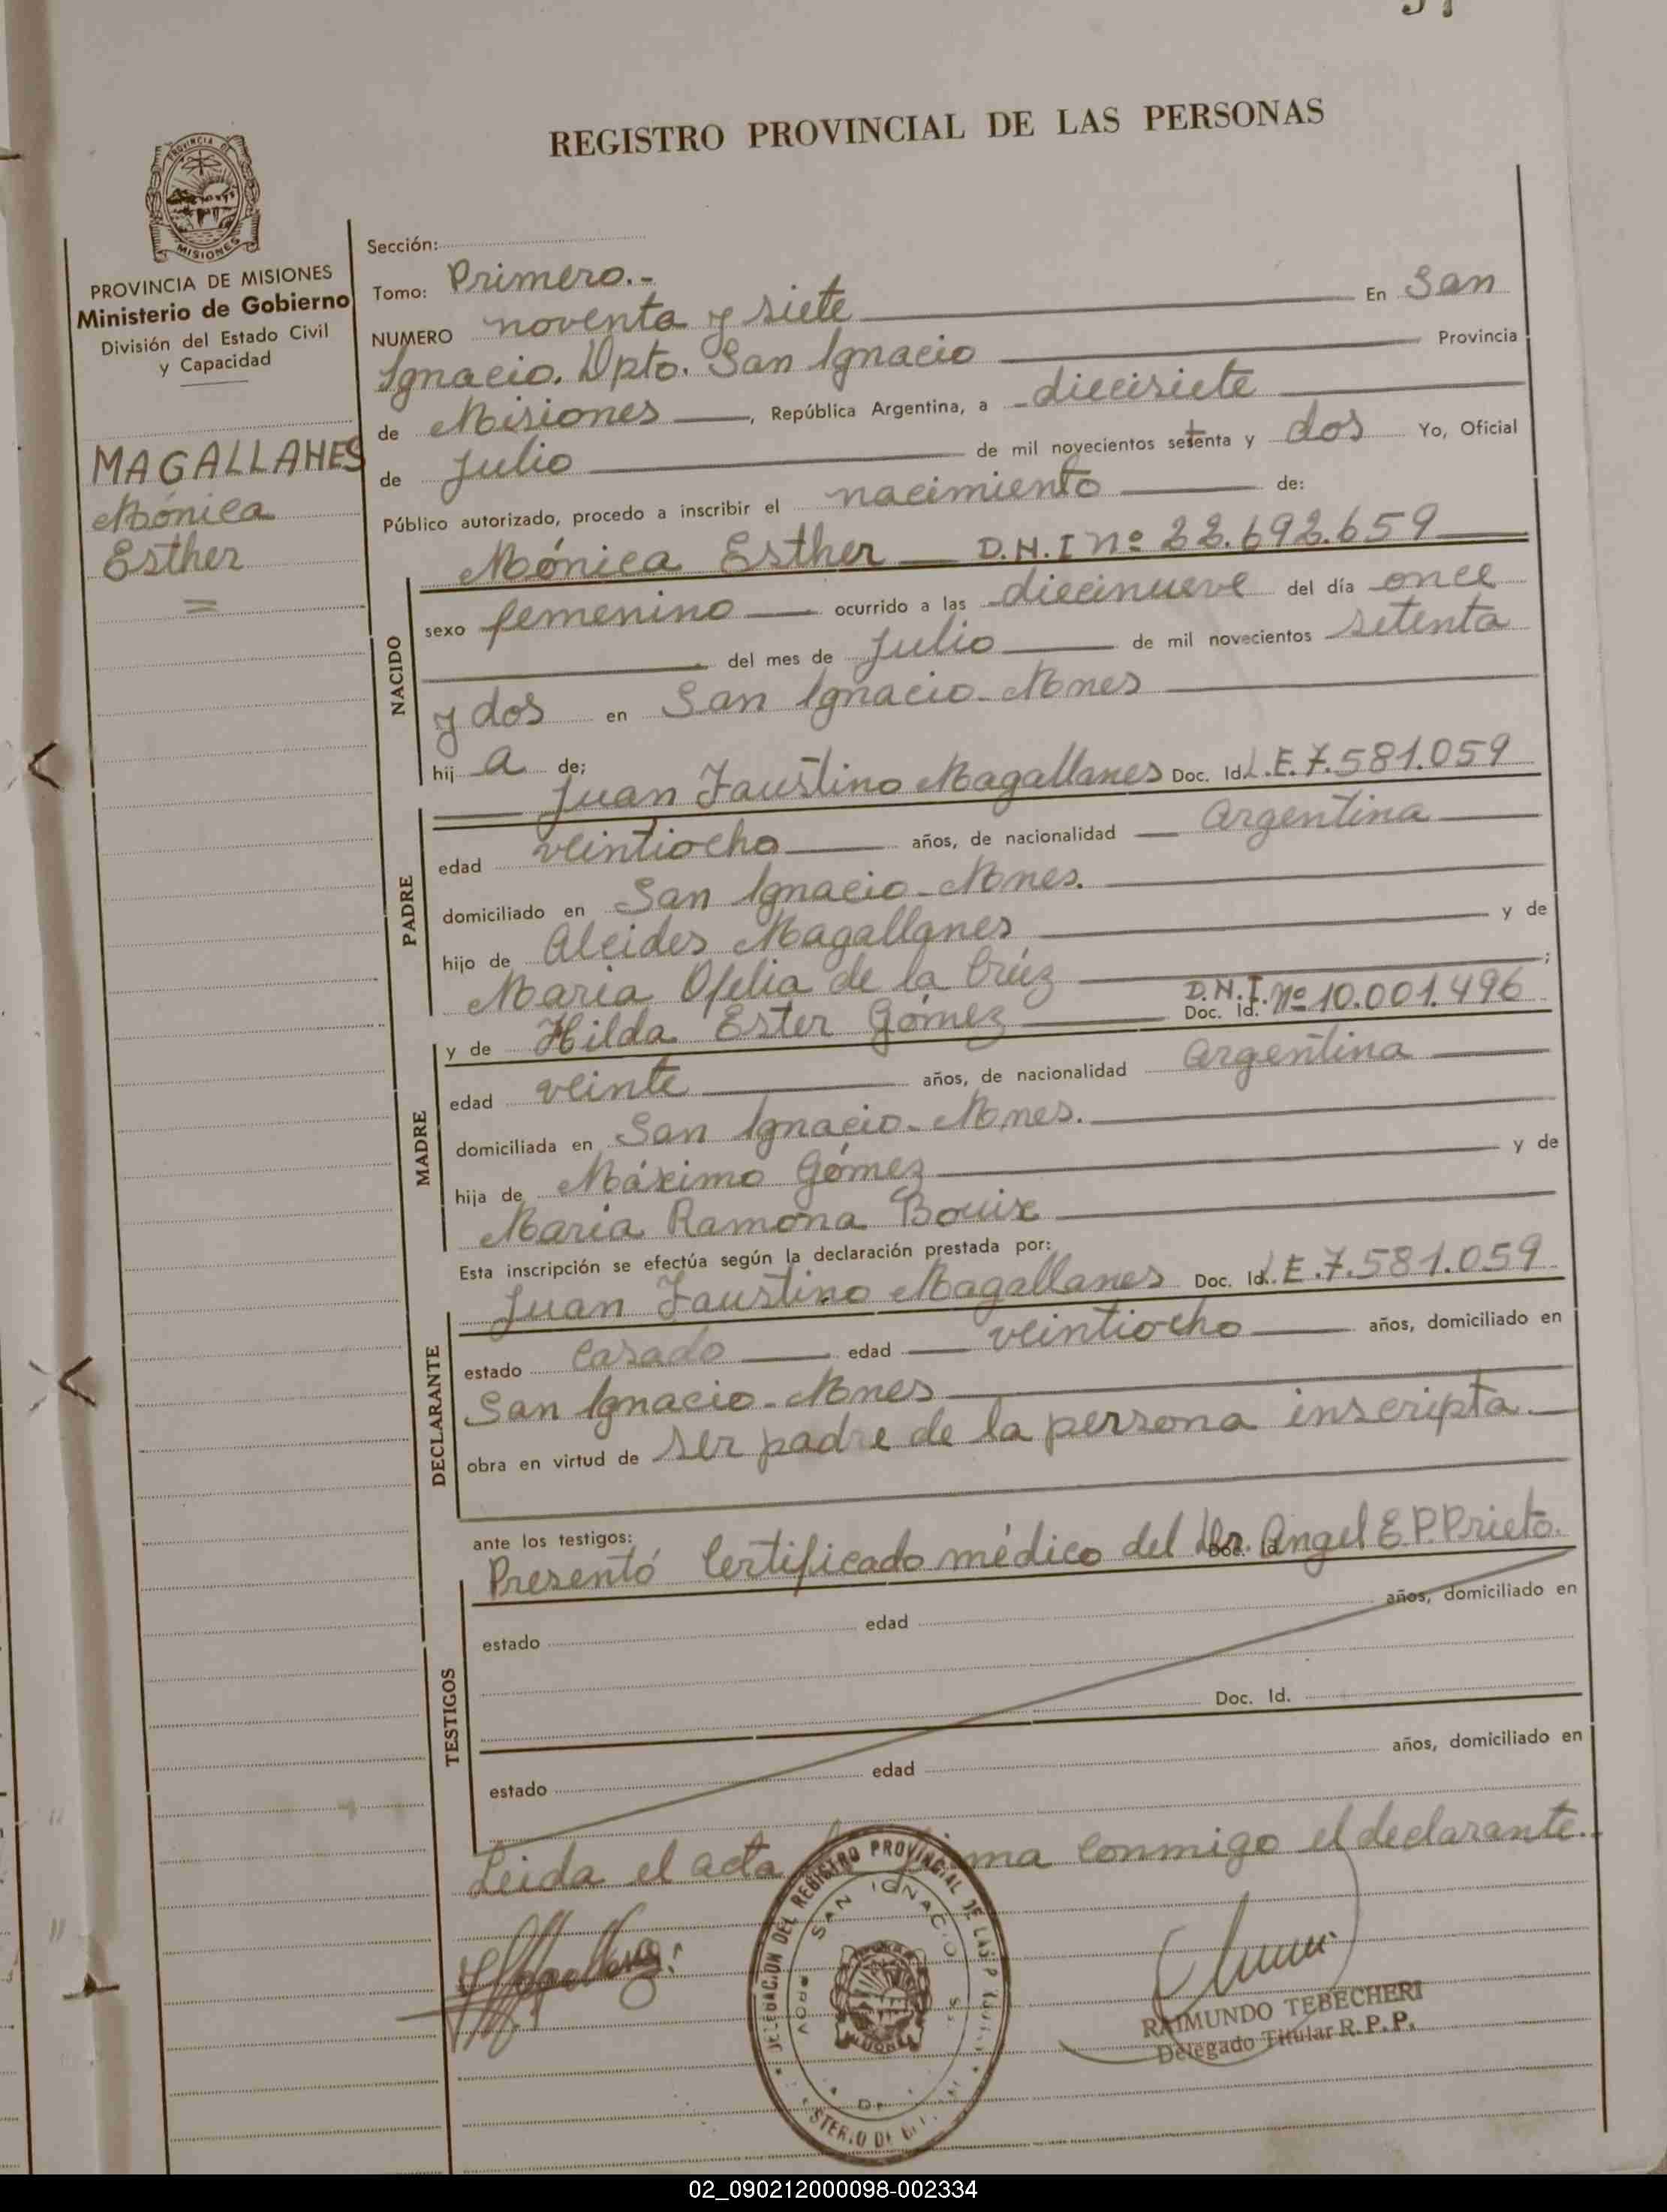 REGISTRO PROVINCIAL DE LAS PERSONAS
PROVINCIA DE
MISIONES
PROVINCIA DE MISIONES
Ministerio de Gobierno
División del Estado Civil
y Capacidad
MAGALLANES
Mónica
Esther
=
Sección:
Tomo: Primero.-
NUMERO noventa y siete En San
Ignacio. Dpto. San Ignacio Provincia
de Misiones, República Argentina, a diecisiete
de Julio de mil novecientos setenta y dos Yo, Oficial
Público autorizado, procedo a inscribir el nacimiento de:
NACIDO
Mónica Esther D.N.I nº 22.692.659
sexo femenino ocurrido a las diecinueve del día once
del mes de Julio de mil novecientos setenta
y dos en San Ignacio-Mnes
hij a de;
PADRE
Juan Faustino Magallanes Doc. Id. L.E.7.581.059
edad veintiocho años, de nacionalidad argentina
domiciliado en San Ignacio-Mnes.
hijo de Alcides Magallanes y de
Maria Ofelia de la Crúz ;
MADRE
y de Hilda Ester Gómez D.N.I. Doc. Id. nº 10.001.496
edad veinte años, de nacionalidad argentina
domiciliada en San Ignacio-Mnes.
hija de Máximo Gómez y de
Maria Ramona Bouix
Esta inscripción se efectúa según la declaración prestada por:
DECLARANTE
Juan Faustino Magallanes Doc. Id. L.E.7.581.059
estado Casado edad veintiocho años, domiciliado en
San Ignacio-Mnes
obra en virtud de ser padre de la persona inscripta.
ante los testigos:
TESTIGOS
Presentó Certificado médico del Dr. Doc. Id. Angel E.P.Prieto.
estado edad años, domiciliado en
Doc. Id.
estado edad años, domiciliado en
Leida el acta conmigo el declarante.
DELEGACION DEL REGISTRO PROVINCIAL DE LAS
SAN IGNACIO
PROV
RAIMUNDO TEBECHERI
Delegado Titular R.P.P.
02_090212000098-002334